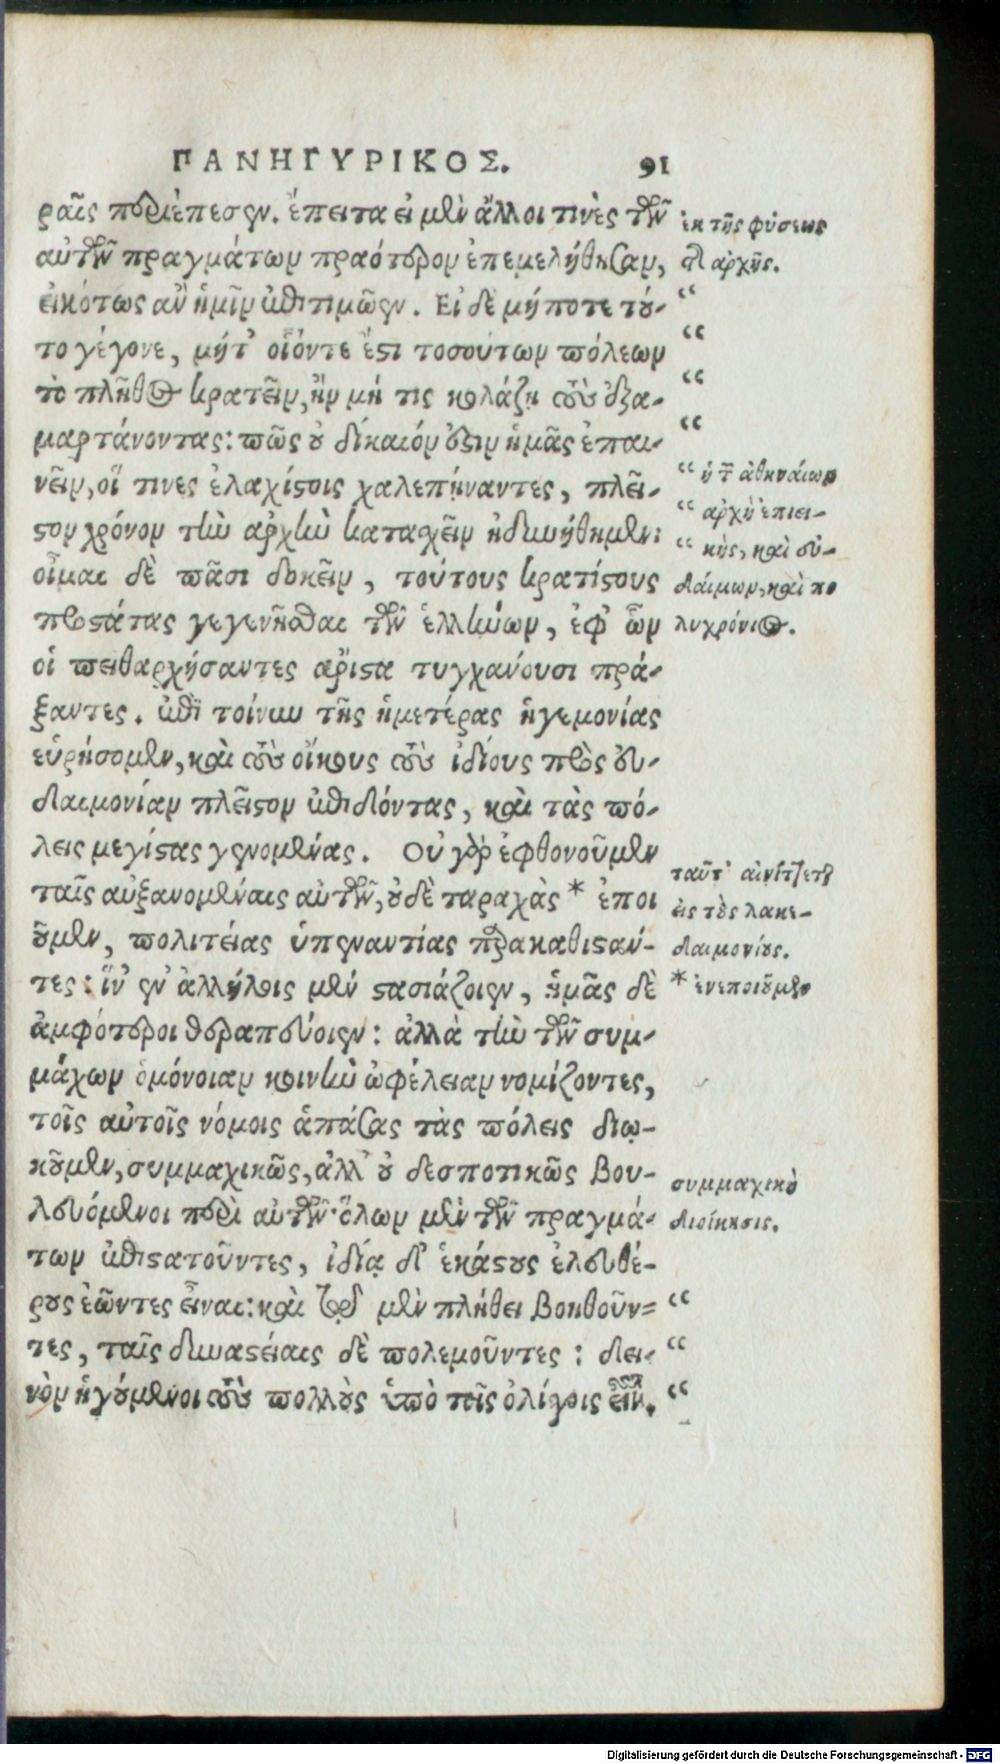 ΠΑΝΗΓΥΡΙΚΟΣ. 91
ραῖς περιέπεσεν. ἔπειτα εἰ μὲν ἄλλοι τινὲς τῶν
αὐτῶν πραγμάτων πραότερον ἐπεμελήθησαν,
εἰκότως ἂν ἡμῖν ἐπιτιμῷεν. Εἰ δὲ μήποτε τοῦ-
το γέγονε, μήτ' οἷόντε ἔστι τοσούτων πόλεων
τὸ πλῆθος κρατεῖν, ἢν μή τις κολάζῃ τοὺς ἐξα-
μαρτάνοντας: πῶς οὐ δίκαιόν ἐστιν ἡμᾶς ἐπαι-
νεῖν, οἵ τινες ἐλαχίστοις χαλεπήναντες, πλεῖ-
στον χρόνον τὴν ἀρχὴν κατασχεῖν ἠδυνήθημεν:
οἶμαι δὲ πᾶσι δοκεῖν, τούτους κρατίστους
προστάτας γεγενῆσθαι τῶν ἑλλήνων, ἐφ' ὧν
οἱ πειθαρχήσαντες ἄριστα τυγχάνουσι πρά-
ξαντες. ἐπὶ τοίνυν τῆς ἡμετέρας ἡγεμονίας
εὑρήσομεν, καὶ τοὺς οἴκους τοὺς ἰδίους πρὸς εὐ-
δαιμονίαν πλεῖστον ἐπιδόντας, καὶ τὰς πό-
λεις μεγίστας γενομένας. Οὐ γὰρ ἐφθονοῦμεν
ταῖς αὐξανομέναις αὐτῶν, οὐδὲ ταραχὰς * ἐποι
οῦμεν, πολιτείας ὑπεναντίας παρακαθιστάν-
τες: ἵν' ἐν ἀλλήλοις μὲν στασιάζοιεν, ἡμᾶς δὲ
ἀμφότεροι θεραπεύοιεν: ἀλλὰ τὴν τῶν συμ-
μάχων ὁμόνοιαν κοινὴν ὠφέλειαν νομίζοντες,
τοῖς αὐτοῖς νόμοις ἁπάσας τὰς πόλεις διῳ-
κοῦμεν, συμμαχικῶς, ἀλλ' οὐ δεσποτικῶς βου-
λευόμενοι περὶ αὐτῶν· ὅλων μὲν τῶν πραγμά-
των ἐπιστατοῦντες, ἰδίᾳ δ' ἑκάστους ἐλευθέ-
ρους ἐῶντες εἶναι: καὶ τῷ μὲν πλήθει βοηθοῦν-
τες, ταῖς δυναστείαις δὲ πολεμοῦντες: δει-
νὸν ἡγούμενοι τοὺς πολλοὺς ὑπὸ τοῖς ὀλίγοις εἶναι.
ἐκ τῆς φύσεως
τῆς ἀρχῆς.
“
“
“
“
“ ἡ τῶν ἀθηναίων
“ ἀρχὴ ἐπιει-
“ κὴς, καὶ εὐ-
δαίμων, καὶ πο
λυχρόνιος.
ταῦτ' αἰνίττεται
εἰς τοὺς λακε-
δαιμονίους.
* ἐνεποιοῦμεν
συμμαχικὴ
διοίκησις.
“
“
“
Digitalisierung gefördert durch die Deutsche Forschungsgemeinschaft - DFG